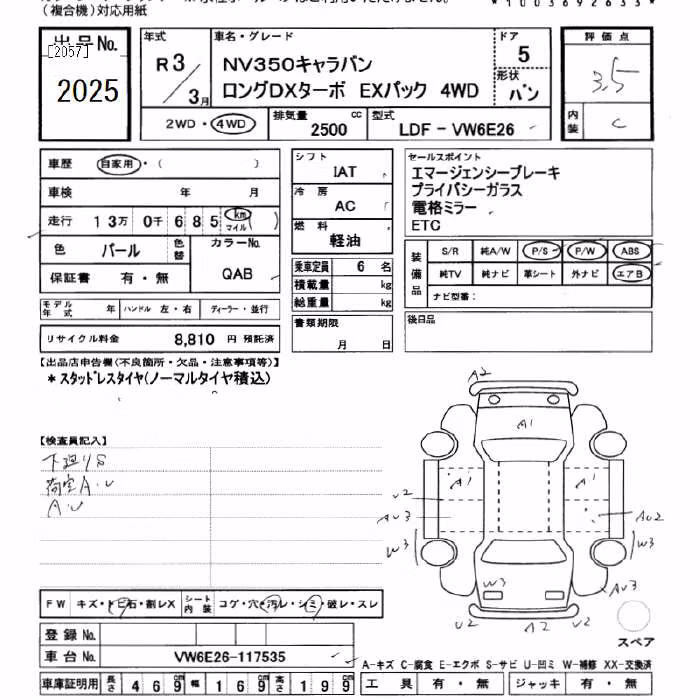 （複合機）対応用紙
*1003692633*
出品No.
[2057]
2025
年式
R3/3月
車名・グレード
NV350キャラバン
ロングDXターボ EXパック 4WD
ドア
5
形状
バン
評価点
3.5
内装
C
2WD・4WD
排気量
2500 cc
型式
LDF-VW6E26
車歴
自家用・（ ）
車検
年 月
走行
13万0千685 km マイル
色
パール
色替
カラーNo.
QAB
保証書
有・無
モデル年式
年
ハンドル 左・右
ディーラー・並行
リサイクル料金
8,810 円 預託済
シフト
IAT
冷房
AC
燃料
軽油
乗車定員 6 名
積載量 kg
総重量 kg
書類期限
月 日
セールスポイント
エマージェンシーブレーキ
プライバシーガラス
電格ミラー
ETC
装備品
S/R 純A/W P/S P/W ABS
純TV 純ナビ 革シート 外ナビ エアB
ナビ型番：
後日品
【出品店申告欄（不良箇所・欠品・注意事項等）】
*スタッドレスタイヤ（ノーマルタイヤ積込）
【検査員記入】
下廻りS
荷室A.U
A.U
A2
A1
A1
A1
U2
AU3
W3
AU2
W3
W3
AU3
U2
A2
U2
スペア
FW
キズ・トビ石・割レX
シート内装
コゲ・穴・汚レ・シミ・破レ・スレ
登録No.
車台No.
VW6E26-117535
A-キズ C-腐食 E-エクボ S-サビ U-凹ミ W-補修 XX-交換済
車庫証明用
長さ 469 cm 幅 169 cm 高さ 199 cm
工具 有・無
ジャッキ 有・無